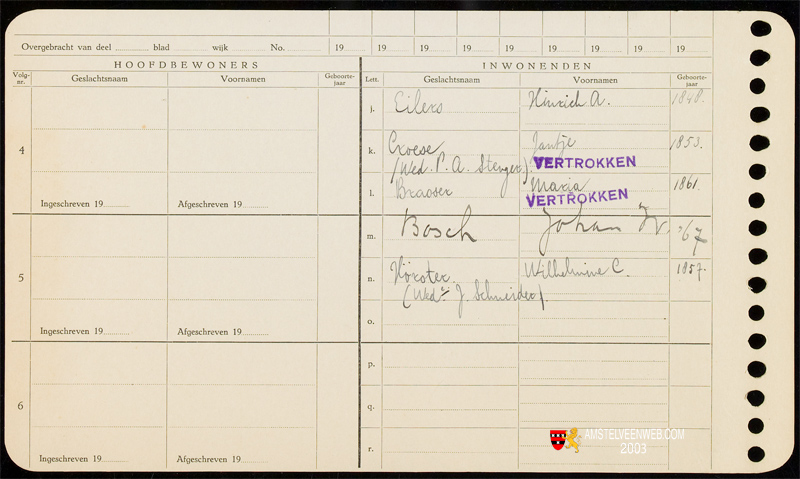 Overgebracht van deel blad wijk No. 19 19 19 19 19 19 19 19 19
HOOFDBEWONERS INWONENDEN
Volg-nr. Geslachtsnaam Voornamen Geboorte-jaar Lett. Geslachtsnaam Voornamen Geboorte-jaar
j. Eilers Hinrich A. 1848.
4 k. Croese Jantje 1853.
(Wed. P. A. Stenger) VERTROKKEN
l. Braaser Maria 1861.
VERTROKKEN
Ingeschreven 19 Afgeschreven 19
m. Bosch Johan W. '67
5 n. Höroter Wilhelmine C. 1857.
(Wed. J. Schneider).
o.
Ingeschreven 19 Afgeschreven 19
p.
6 q.
r.
Ingeschreven 19 Afgeschreven 19
AMSTELVEENWEB.COM
2003